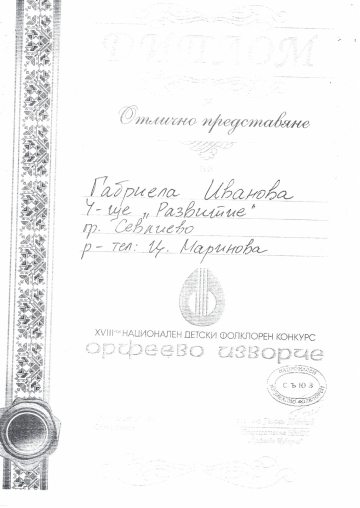 ДИПЛОМ
Отлично представяне
Габриела Иванова
У-ще „Развитие"
гр. Севлиево
р-тел: Цв. Маринова
XVIII-ти НАЦИОНАЛЕН ДЕТСКИ ФОЛКЛОРЕН КОНКУРС
орфеево изворче
СЪЮЗ